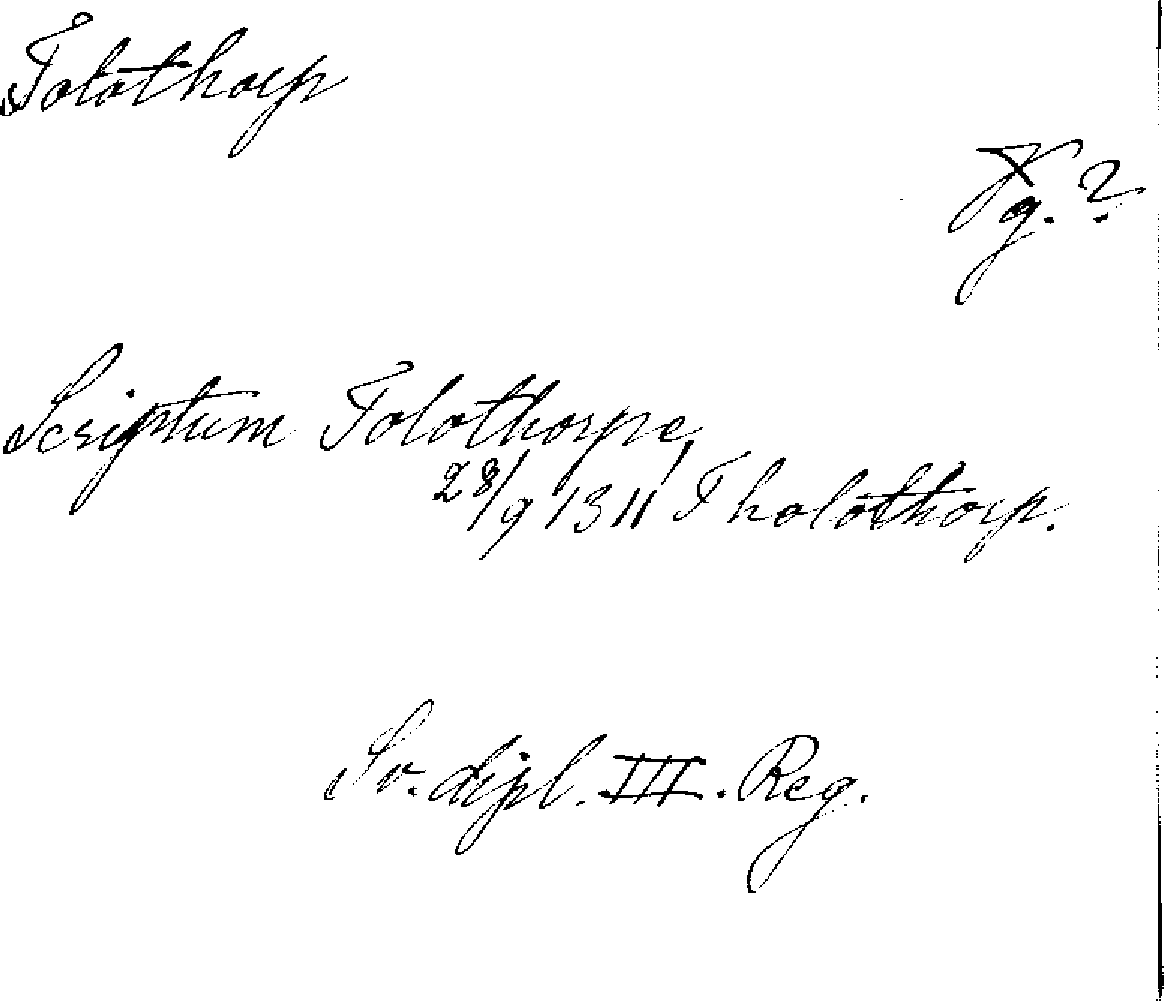 Tolothorp
Xg. ?
Scriptum Tolothorpe,
28/9 1311, Tholothorp.
Sv. dipl. III. Reg.